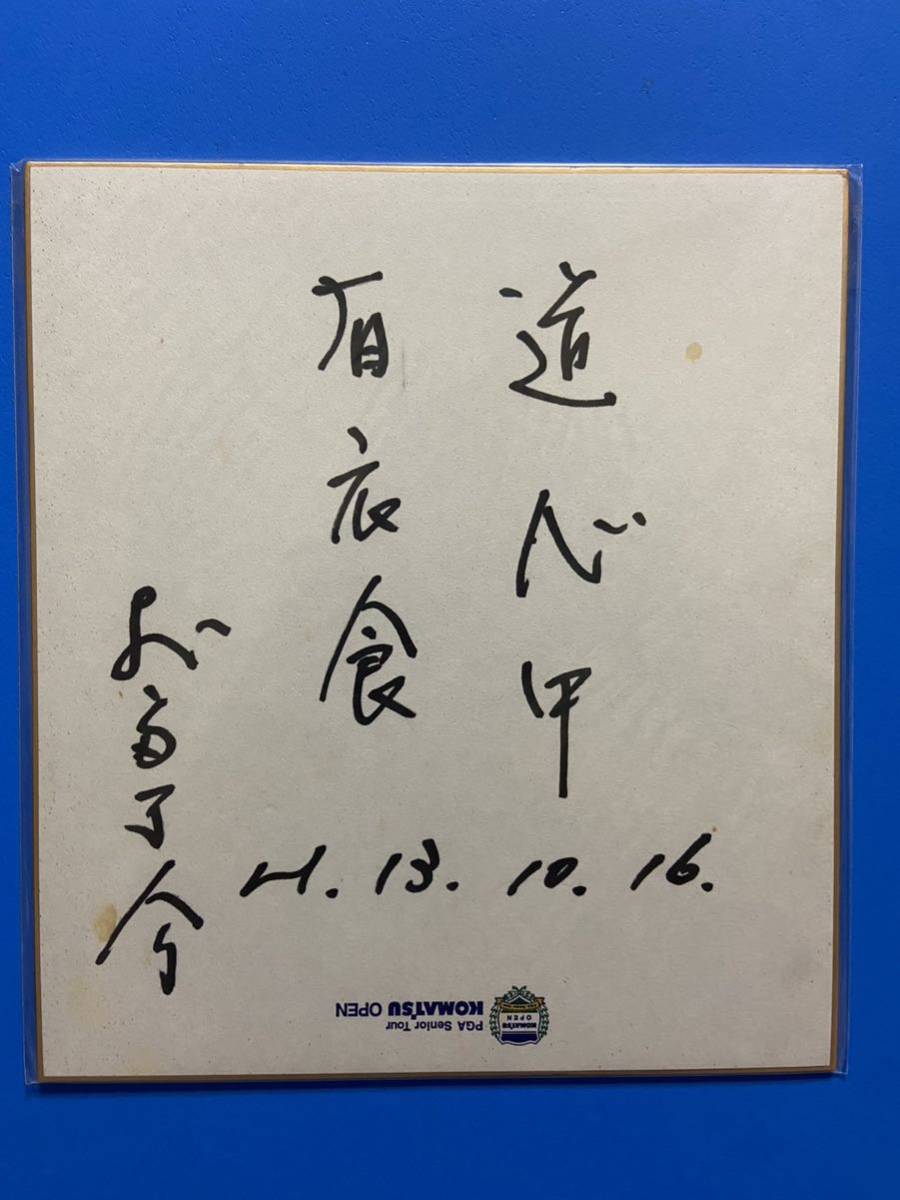 道心中
有衣食
H. 13. 10. 16.
PGA Senior Tour
KOMATSU OPEN
KOMATSU
OPEN